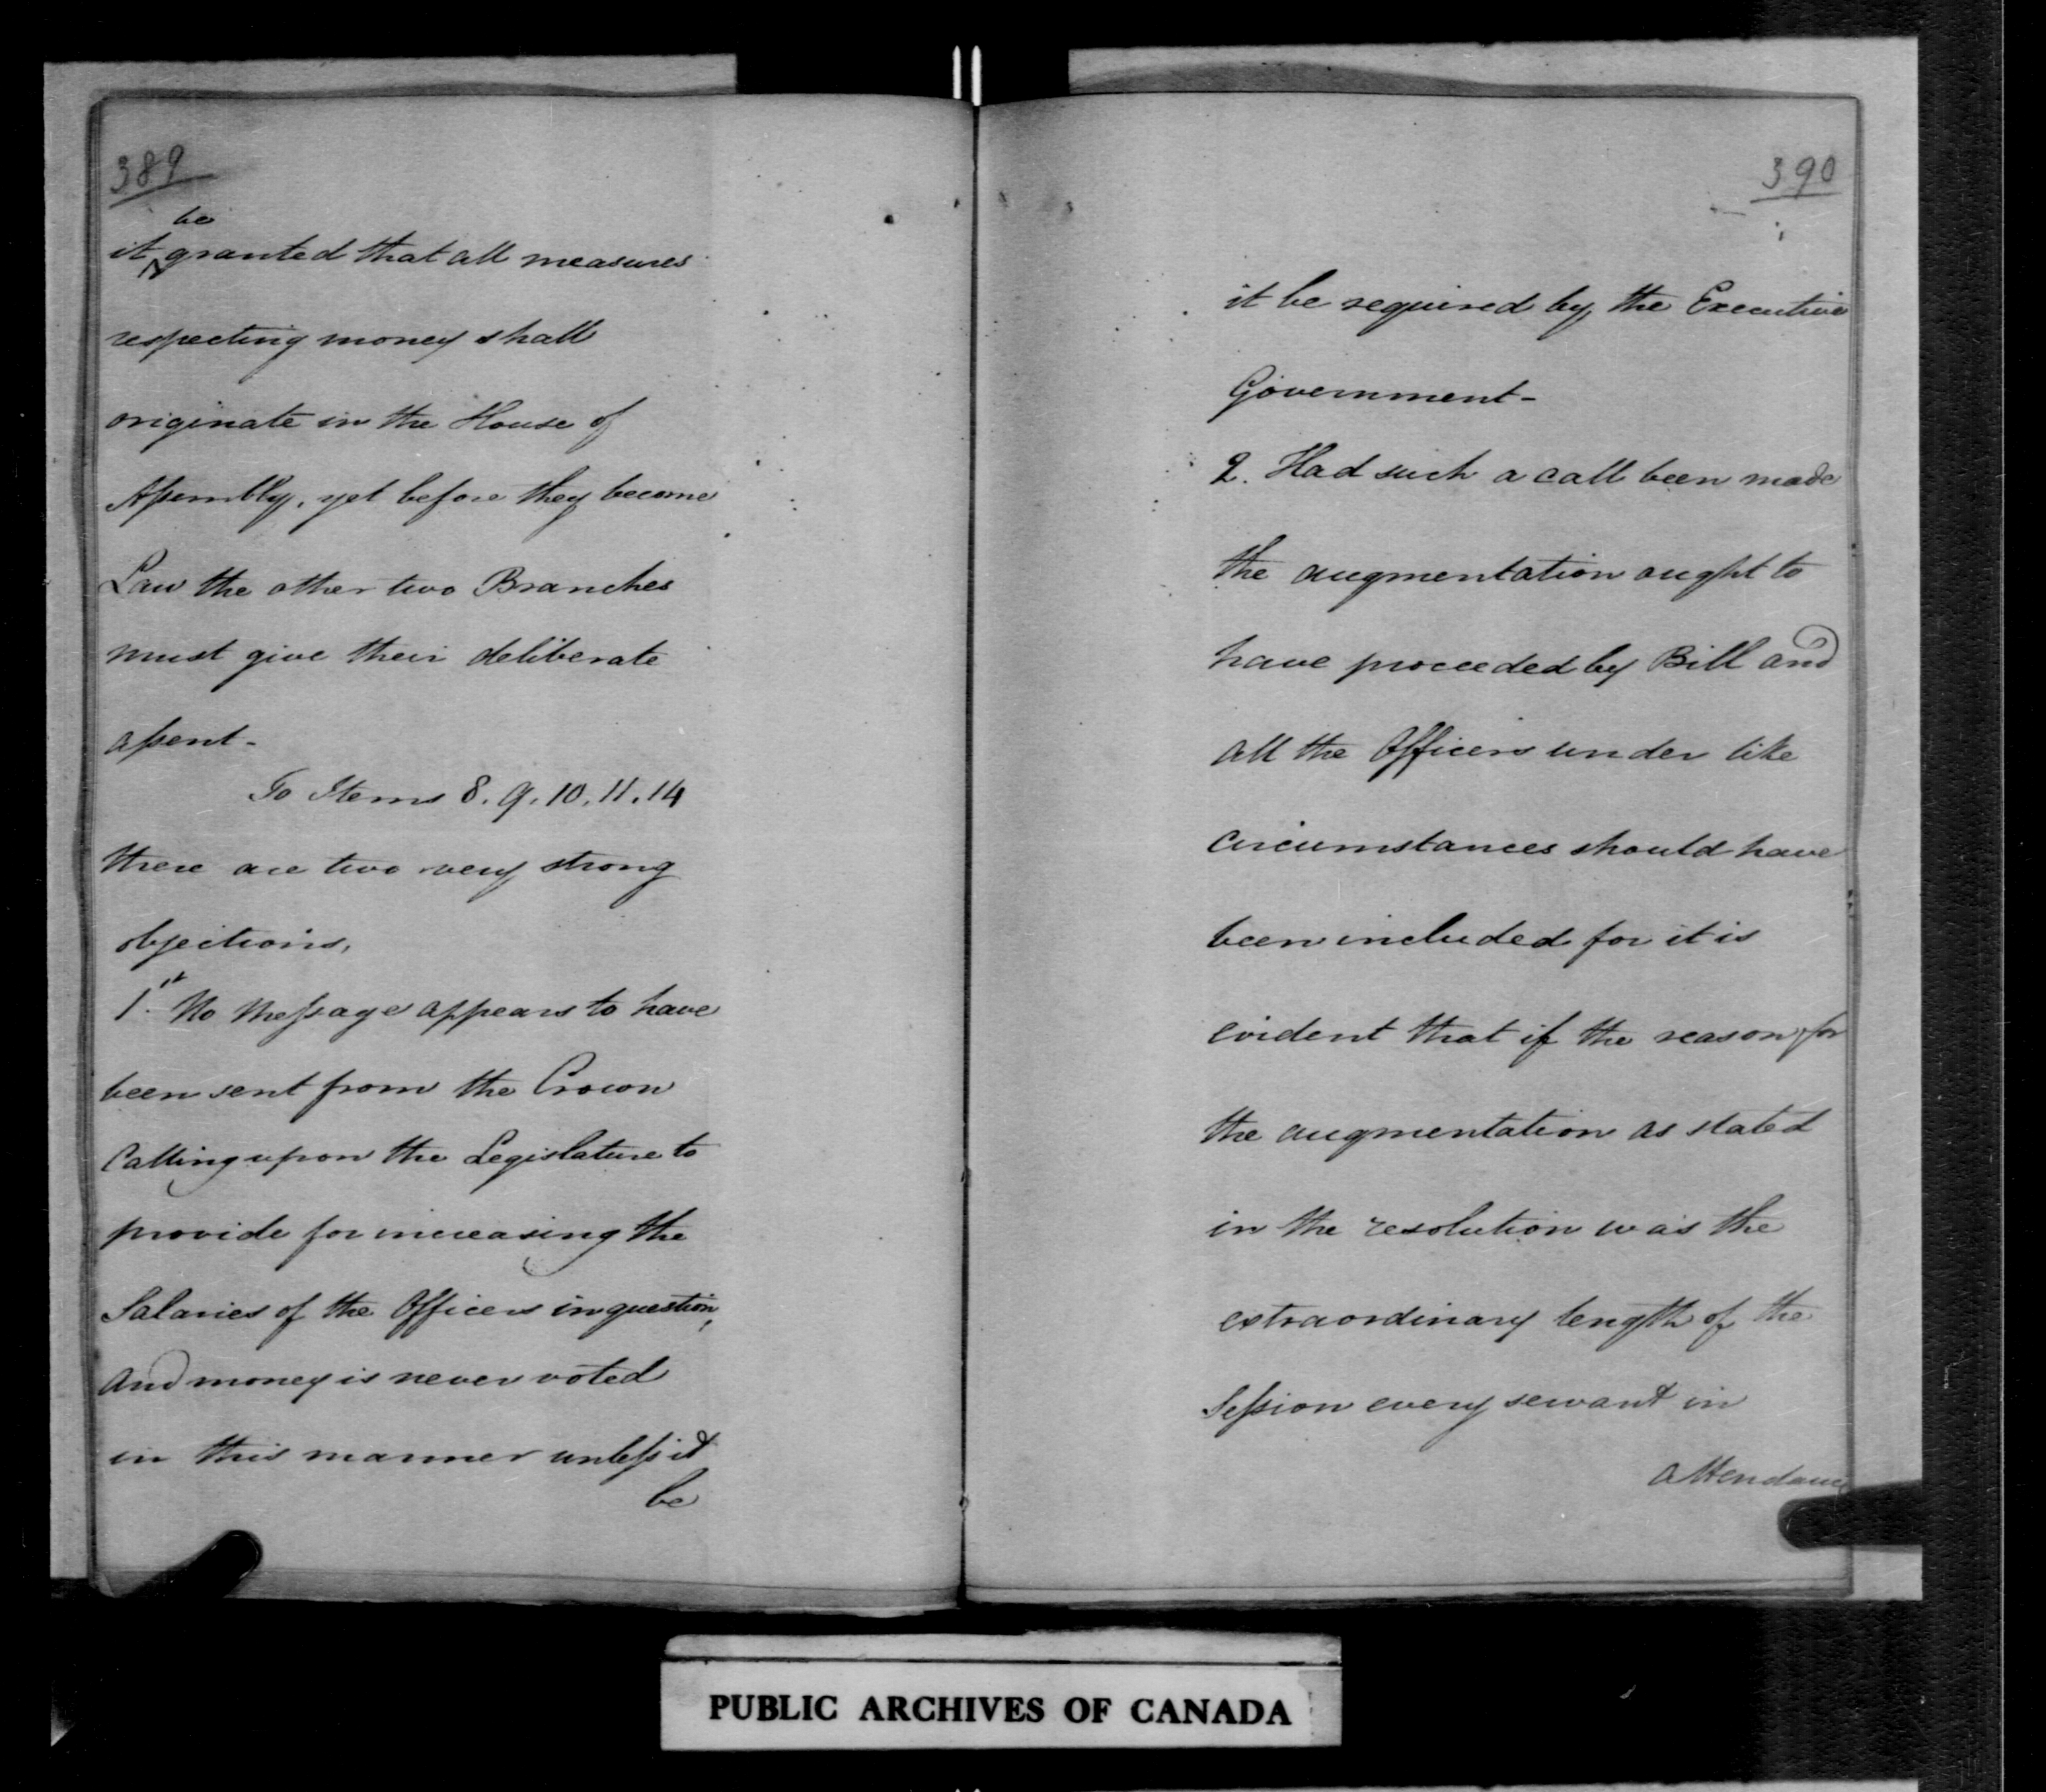 389
be
it granted that all measures
respecting money shall
originate in the House of
Assembly, yet before they become
Law the other two Branches
must give their deliberate
assent -
To Items 8. 9. 10. 11. 14
there are two very strong
objections,
1st No Message appears to have
been sent from the Crown
Calling upon the Legislature to
provide for increasing the
Salaries of the Officers in question,
and money is never voted
in this manner unless it
be
390
it be required by the Executive
Government -
2. Had such a call been made
the augmentation ought to
have proceeded by Bill and
all the Officers under like
circumstances should have
been included for it is
evident that if the reason for
the augmentation as stated
in the resolution was the
extraordinary length of the
Session every servant in
attendance
PUBLIC ARCHIVES OF CANADA